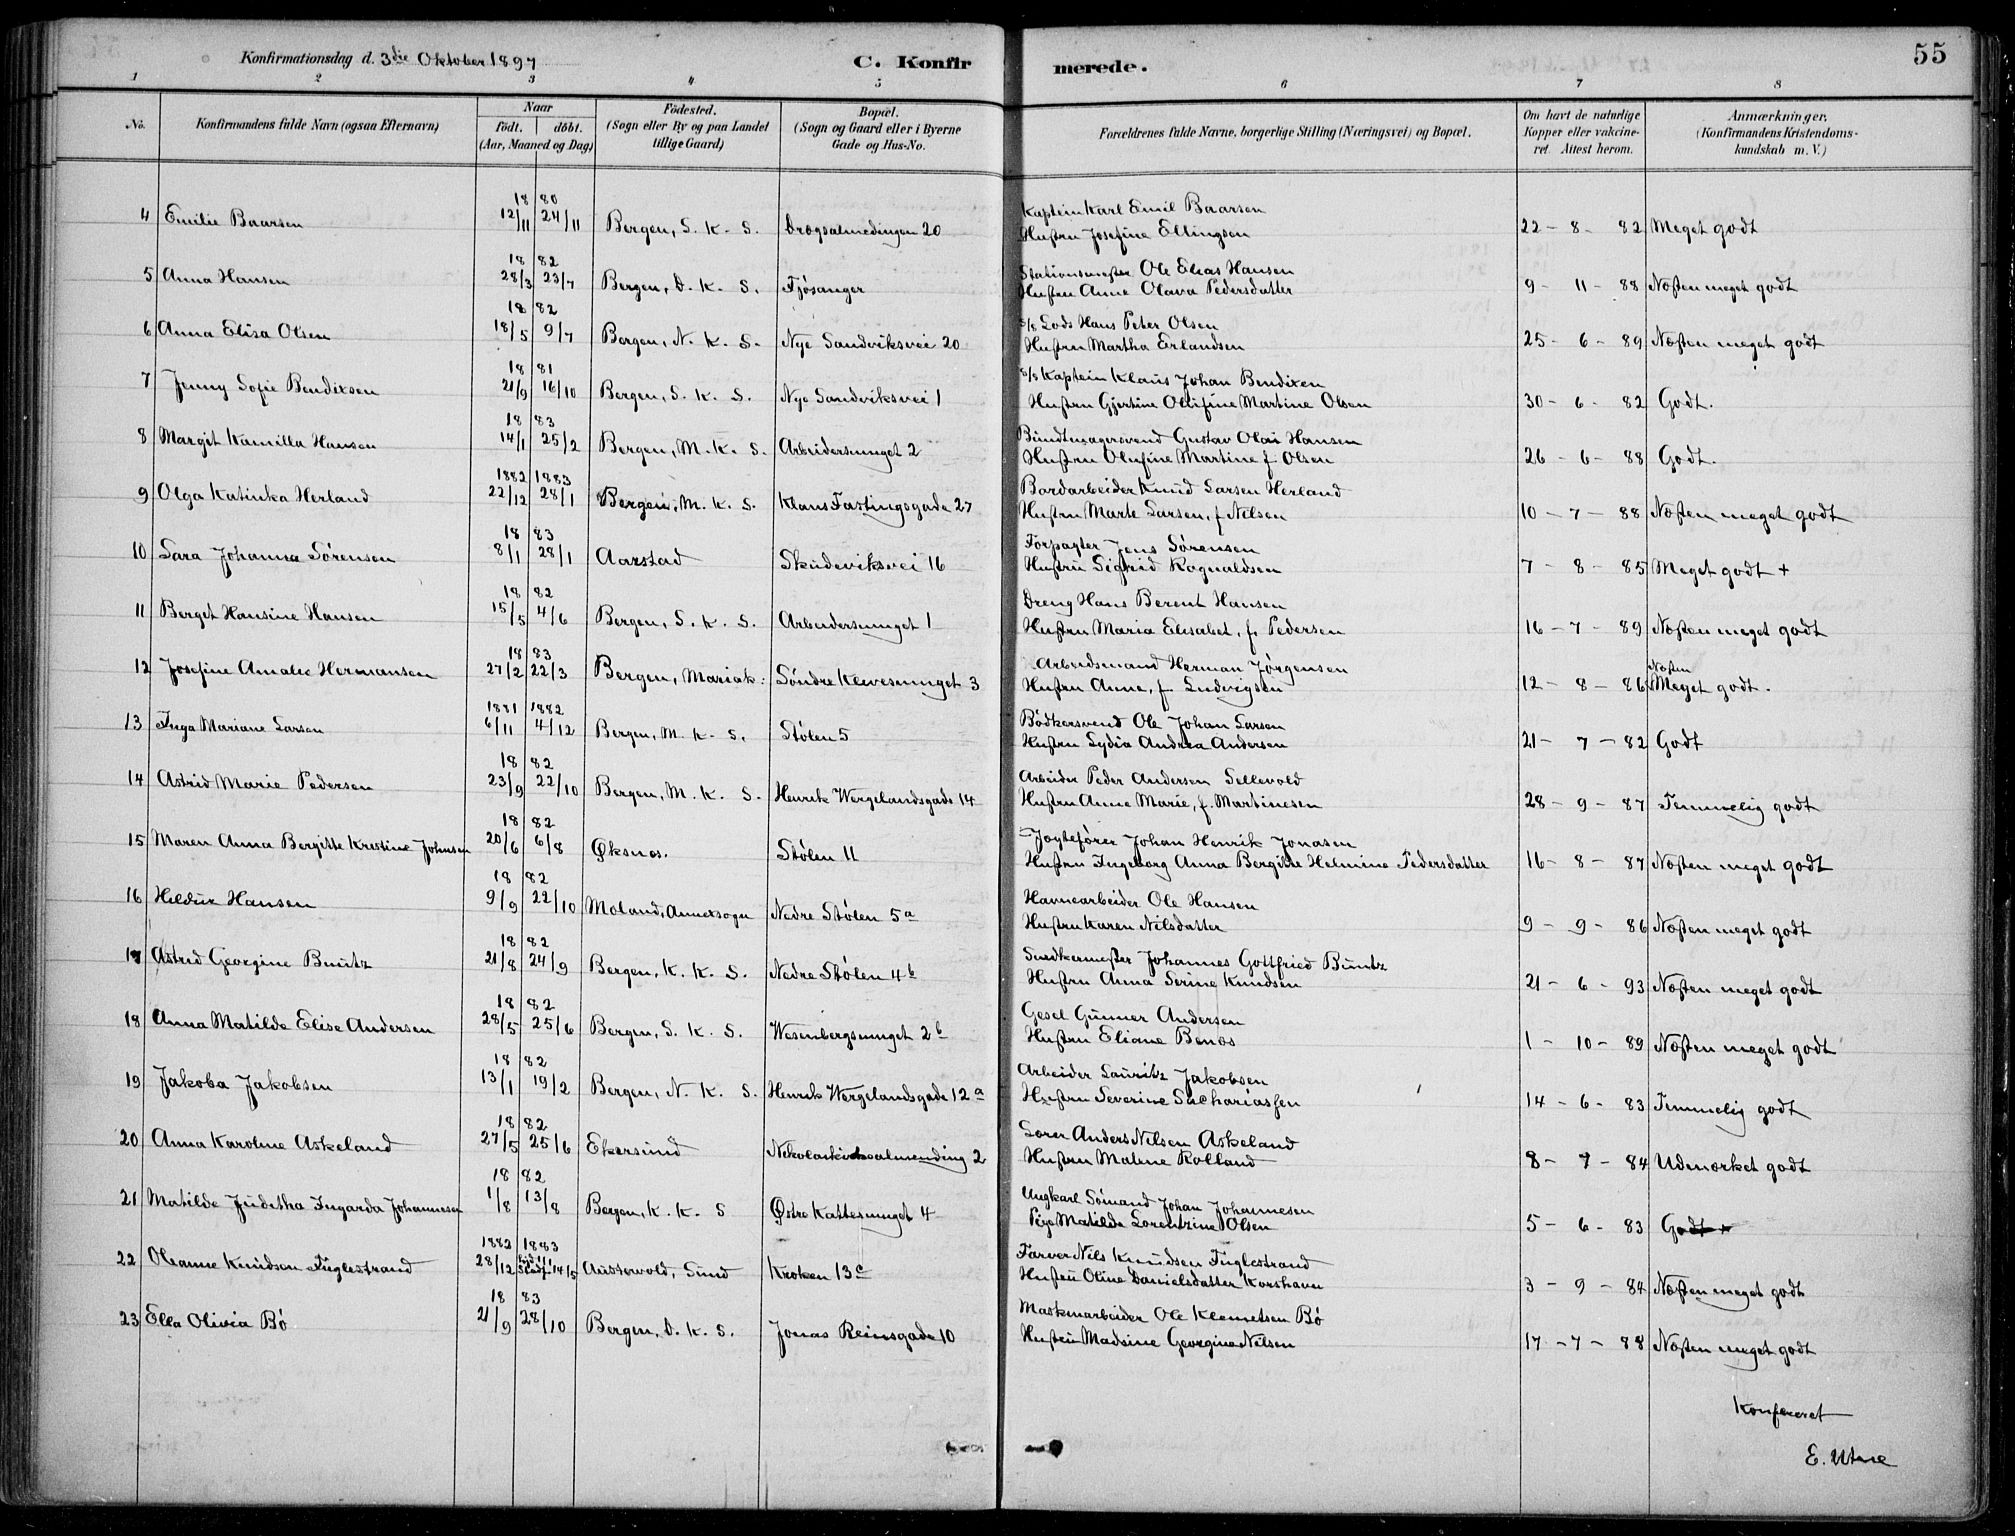 Konfirmationsdag d. 3die Oktober 1897
C. Konfirmerede.
55
1 2 3 4 5 6 7 8
No.
Konfirmandens fulde Navn (ogsaa Efternavn)
Naar
födt. döbt.
(Aar, Maaned og Dag)
Födested.
(Sogn eller By og paa Landet
tillige Gaard)
Bopæl.
(Sogn og Gaard eller i Byerne
Gade og Hus-No.
Forældrenes fulde Navne, borgerlige Stilling (Næringsvei) og Bopæl.
Om havt de naturlige
Kopper eller vakcine-
ret. Attest herom.
Anmærkninger.
(Konfirmandens Kristendoms-
kundskab m. V.)
18 80
4 Emilie Baarsen 12/11 24/11 Bergen, S. K. S. Drægsalmedingen 20 Kaptein Karl Emil Baarsen
Hustru Josefine Ellingsen 22 - 8 - 82 Meget godt
18 82
5 Anna Hansen 28/3 23/7 Bergen, D. K. S. Fjøsanger Stationsmester Ole Elias Hansen
Hustru Anne Olava Pedersdatter 9 - 11 - 88 Næsten meget godt
18 82
6 Anna Elisa Olsen 18/5 9/7 Bergen, N. K. S. Nye Sandviksvei 20 Lods Hans Peter Olsen
Hustru Martha Erlandsen 25 - 6 - 89 Næsten meget godt
18 81
7 Jenny Sofie Bendixsen 21/9 16/10 Bergen, S. K. S. Nye Sandviksvei 1 Kaptein Klaus Johan Bendixen
Hustru Gjertine Ollifine Martine Olsen 30 - 6 - 82 Godt.
18 83
8 Margit Kamilla Hansen 14/1 25/2 Bergen, M. K. S. Arbeidersmuget 2 Bundtmagersvend Gustav Olai Hansen
Hustru Olufine Martine f. Olsen 26 - 6 - 88 Godt.
1882 1883
9 Olga Katinka Herland 22/12 28/1 Bergen, M. K. S. Klaus Fastingsgade 27 Bordarbeider Knud Larsen Herland
Hustru Marte Larsen, f. Nilsen 10 - 7 - 88 Næsten meget godt
18 83
10 Sara Johanna Sörensen 8/1 28/1 Aarstad Skudeviksvei 16 Forpagter Jens Sørensen
Hustru Sigrid Ragnaldsen 7 - 8 - 85 Meget godt +
18 82
11 Berget Hansine Hansen 15/5 4/6 Bergen, S. K. S. Arbeidersmuget 1 Dreng Hans Berent Hansen
Hustru Maria Elisabet, f. Pedersen 16 - 7 - 89 Næsten meget godt
18 83
12 Josefine Amalie Hermansen 27/2 22/3 Bergen, Mariak: Söndre Klevesmuget 3 Arbeidsmand Herman Jørgensen
Hustru Anne, f. Ludvigsen 12 - 8 - 86 Næsten Meget godt.
1881 1882
13 Inga Mariane Larsen 6/11 4/12 Bergen, M. K. S. Stølen 5 Bödkersvend Ole Johan Larsen
Hustru Lydia Andrea Andersen 21 - 7 - 82 Godt
18 82
14 Astrid Marie Pedersen 23/9 22/10 Bergen, M. K. S. Henrik Wergelandsgade 14 Arbeider Peder Andersen Sellevold
Hustru Anne Marie, f. Martinesen 28 - 9 - 87 Temmelig godt
18 82
15 Maren Anna Bergitte Kristine Johnsen 20/6 6/8 Øksnes. Stølen 11 Johan Henrik Jonasen
Hustru Ingeborg Anna Bergitte Helmine Pedersdatter 16 - 8 - 87 Næsten meget godt
18 82
16 Hildur Hansen 9/9 22/10 Moland, Annexsogn Nedre Stølen 5a Havnearbeider Ole Hansen
Hustru Karen Nilsdatter 9 - 9 - 86 Næsten meget godt
18 82
17 Astrid Georgine Buntz 21/8 24/9 Bergen, K. K. S. Nedre Stølen 4b Snedkermester Johannes Gottfried Buntz
Hustru Anna Serine Knudsen 21 - 6 - 93 Næsten meget godt
18 82
18 Anna Matilde Elise Andersen 28/5 25/6 Bergen, S. K. S. Wesenbergsmuget 2b Gesel Gunner Andersen
Hustru Eliane Benos 1 - 10 - 89 Næsten meget godt
18 82
19 Jakoba Jakobsen 13/1 19/2 Bergen, N. K. S. Henrik Wergelandsgade 12a Arbeider Lauritz Jakobsen
Hustru Severine Sachariassen 14 - 6 - 83 Temmelig godt
18 82
20 Anna Karoline Askeland 27/5 25/6 Ekersund Nikolaikirkealmending 2 Anders Nilsen Askeland
Hustru Malene Rolland 8 - 7 - 84 Udmærket godt
18 82
21 Matilde Juditha Ingarda Johannesen 1/8 13/8 Bergen, K. K. S Østre Kattesmuget 4 Ungkarl Sömand Johan Johannesen
Pige Matilde Lorentzine Olsen 5 - 6 - 83 Godt
1882 1883
22 Oleanne Knudsen Fuglestrand 28/12 14/5 Austevold, Sund Kroken 13c Farver Nils Knudsen Fuglestrand
Hustru Oline Danielsdatter Korshavn 3 - 9 - 84 Næsten meget godt
18 83
23 Ella Olivia Bö 21/9 28/10 Bergen, D. K. S. Jonas Reinsgade 10 Maskinarbeider Ole Klemetsen Bö
Hustru Madsine Georgine Nilsen 17 - 7 - 88 Næsten meget godt
Konfereret
E. Utne